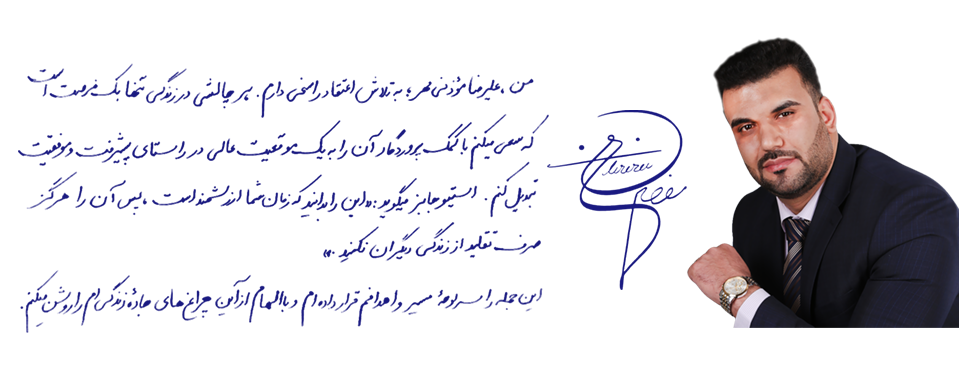 من ، علیرضا مؤذنی مهر ، به تلاش اعتقاد راسخی دارم . هر چالشی در زندگی تنها یک فرصت است
که سعی میکنم با کمک پروردگار آن را به یک موقعیت عالی در راستای پیشرفت و موفقیت
تبدیل کنم . استیو جابز میگوید : «این را بدانید که زمان شما ارزشمند است ، پس آن را هرگز
صرف تقلید از زندگی دیگران نکنید .»
این جمله را سرلوحهٔ مسیر و اهدافم قرار داده ام و با الهام از آن چراغ های جادهٔ زندگی ام را روشن میکنم .